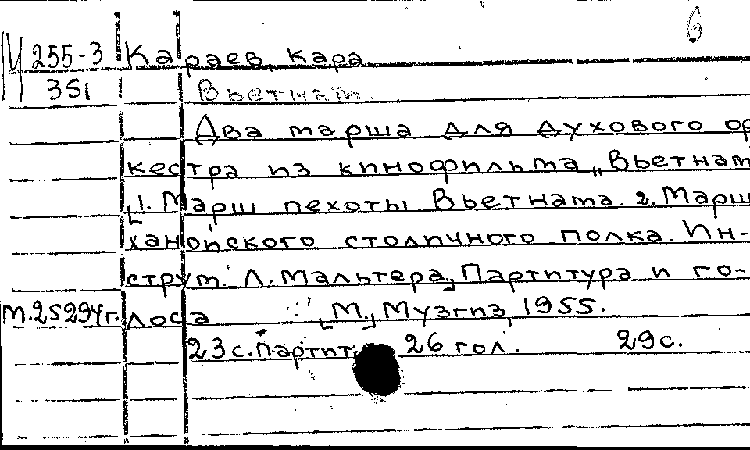 6
М 255-3 Караев, Кара
351 Вьетнам.
Два марша для духового ор
кестра из кинофильма „Вьетнам
[1. Марш пехоты Вьетнама. 2. Марш
ханойского столичного полка. Ин-
струм. Л. Мальтера] Партитура и го-
м.25294г. лоса [М.], Музгиз, 1955.
23с. партит. 26 гол. 29с.